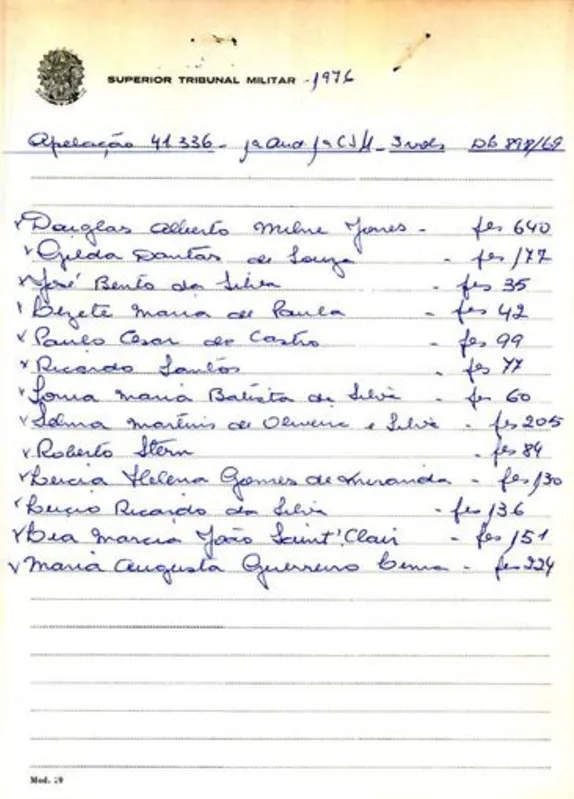 SUPERIOR TRIBUNAL MILITAR - 1976
Apelação 41.336 - 1ª Aud 1ª CJM - 3 vols DL 898/69
v Douglas Alberto Milne Jones - fls 640
v Gilda Dantas de Souza - fls 177
v José Bento da Silva - fls 35
v Lizete Maria de Paula - fls 42
v Paulo Cesar de Castro - fls 99
v Ricardo Santos - fls 77
v Sonia Maria Batista da Silva - fls 60
v Selma Martins de Oliveira e Silva - fls 205
v Roberto Stern - fls 84
v Lucia Helena Gomes de Miranda - fls 130
v Lucio Ricardo da Silva - fls 136
v Lea Marcia João Saint'Clair - fls 151
v Maria Augusta Guerreiro Lima - fls 224
Mod. 29